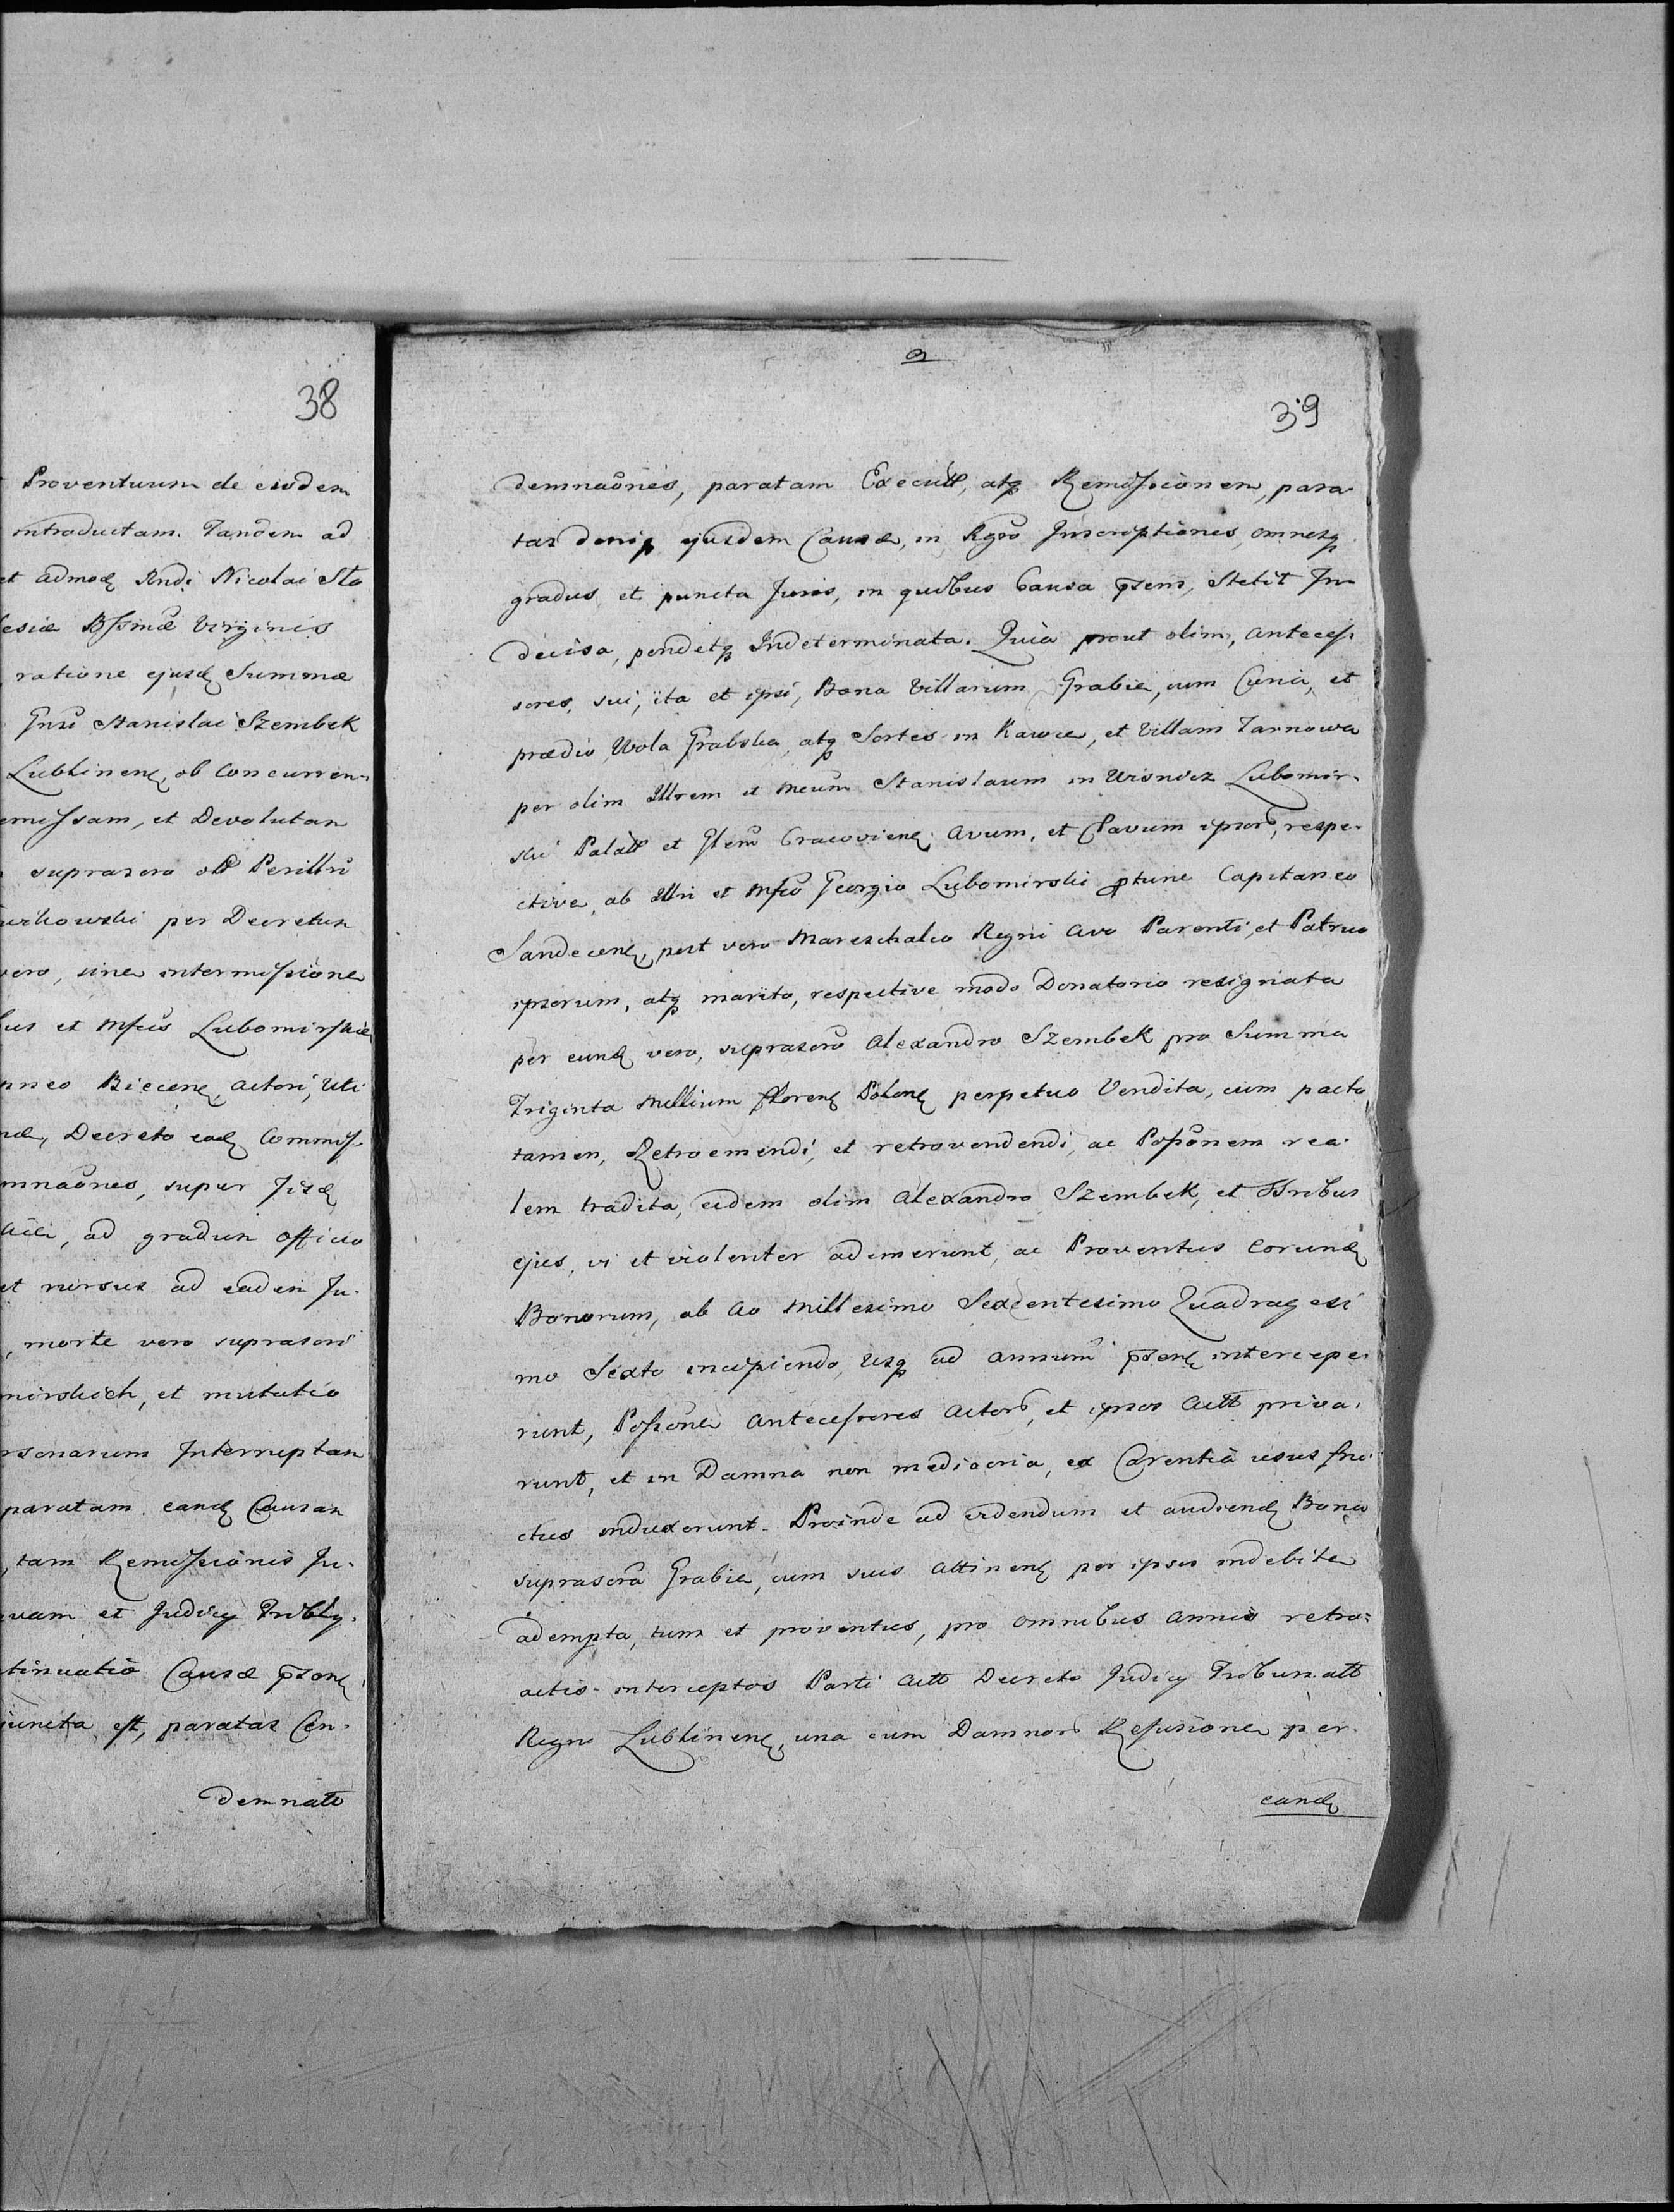 38
Proventuum de eisdem
introductam. Tandem ad
et admod Rndi Nicolai Sto
lesiæ Bssmæ Virginis
ratione ejusd Summæ
Gnsi Stanislai Szembek
Lublinen, ob Concurren-
emissam, et Devolutam
suprascro olim Perillri
per Decretum
vero, sine intermissione
lus et Mfcus Lubomirski
aneo Biecen, actori, uti
næ, Decreto eod Commis-
mnaones, super Jisd
ad gradum officio
et rursus ad eadem Ju-
, morte vero suprascri
mirskich, et mutatio
rsonarum Interruptam
paratam eand Causam
, tam Remissionis Ju-
quam et Judicy Tribly.
tinuatio Causæ psen
juncta est, paratas Con-
demnatt
3
39
demnaones, paratam Executt, atq Remissionem, para-
tas deniq ejusdem Causæ, in Rgro Inscriptiones, omnesq
gradus et puncta Juris, in quibus Causa psens, stetit In-
decisa, pendetq Indeterminata. Quia prout olim, anteces-
sores, sui, ita et ipsi, Bona Villarum Grabie, cum Curia, et
prædio, Wola Grabska, atq Sortes in Kawce, et Villam Tarnowa
per olim Illrem et Mcum Stanislaum in Wisnicz Lubomir-
ski Palatt et Glem Cracovien, Avum, et Pavum ipsor, respe-
ctive, ab Illri et Mfco Georgio Lubomirski ptunc Capitaneo
Sandecen, post vero Mareschalco Regni Avo Parenti, et Patruo
ipsorum, atq marito, respective modo Donatorio resignata
per eund vero, suprascro Alexandro Szembek pro Summa
Triginta Millium floren Polon perpetuo Vendita, cum pacto
tamen, Retroemendi, et retrovendendi, ac Possonem rea-
lem tradita, eidem olim Alexandro Szembek, et Ssribus
ejus, vi et violenter ademerunt, ac Proventus eorund
Bonorum, ab Ao Millesimo Sexcentesimo Quadragesi
mo Sexto incipiendo, usq ad annum psen intercepe-
runt, Possone antecessores actor, et ipsos Actt priva-
runt, et in Damna non mediocria, ex Carentia usus fru-
ctus induxerunt. Proinde ad videndum et audiend Bona
suprascra Grabie, cum suis attinen, per ipsos indebite
adempta, tum et proventus, pro omnibus annis retro-
actis interceptos Parti Actt Decreto Judicy Tribunatt
Regni Lublinen, una cum Damnor Refusione per
eand